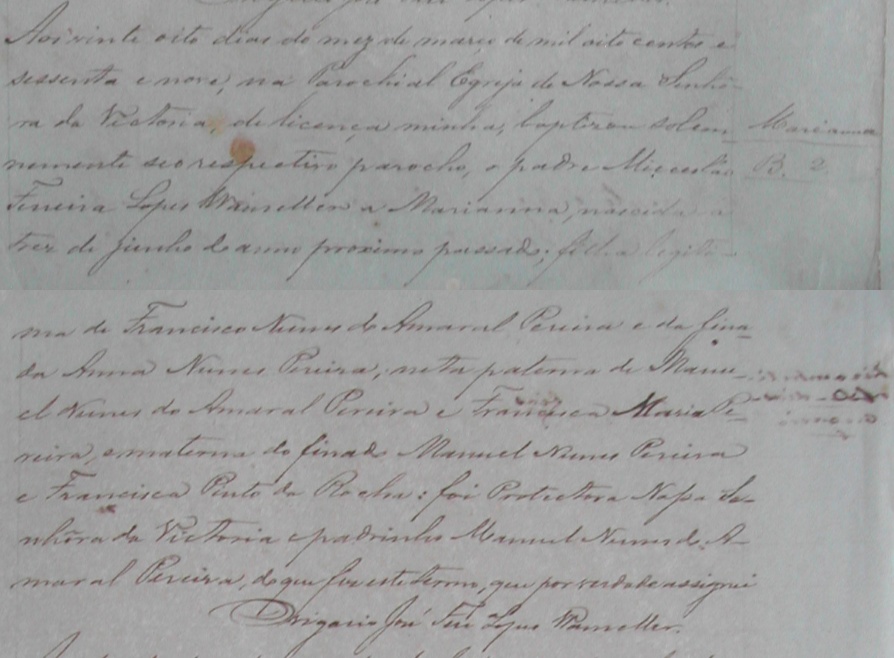 Aos vinte oito dias do mez de março de mil oito centos e
sessenta e nove, na Parochial Egreja de Nossa Senho-
ra da Victoria, de licença minha, baptizou solem
nemente seo respectivo parocho, o padre
Ferreira Lopes Wanzeller a Marianna, nascida a
trez de junho do anno proximo passado; filha legiti-
Marianna
B. 2
ma de Francisco Nunes do Amaral Pereira e da fina-
da Anna Nunes Pereira, neta paterna de Manu-
el Nunes do Amaral Pereira e Francisca Maria Pe-
reira, e materna do finado Manuel Nunes Pereira
e Francisca Pinto da Rocha: foi Protectora Nossa Se-
nhôra da Victoria e padrinho Manuel Nunes do A-
maral Pereira, do que fiz este termo, que por verdade assignei
O Vigario José Ferr. Lopes Wanzeller.